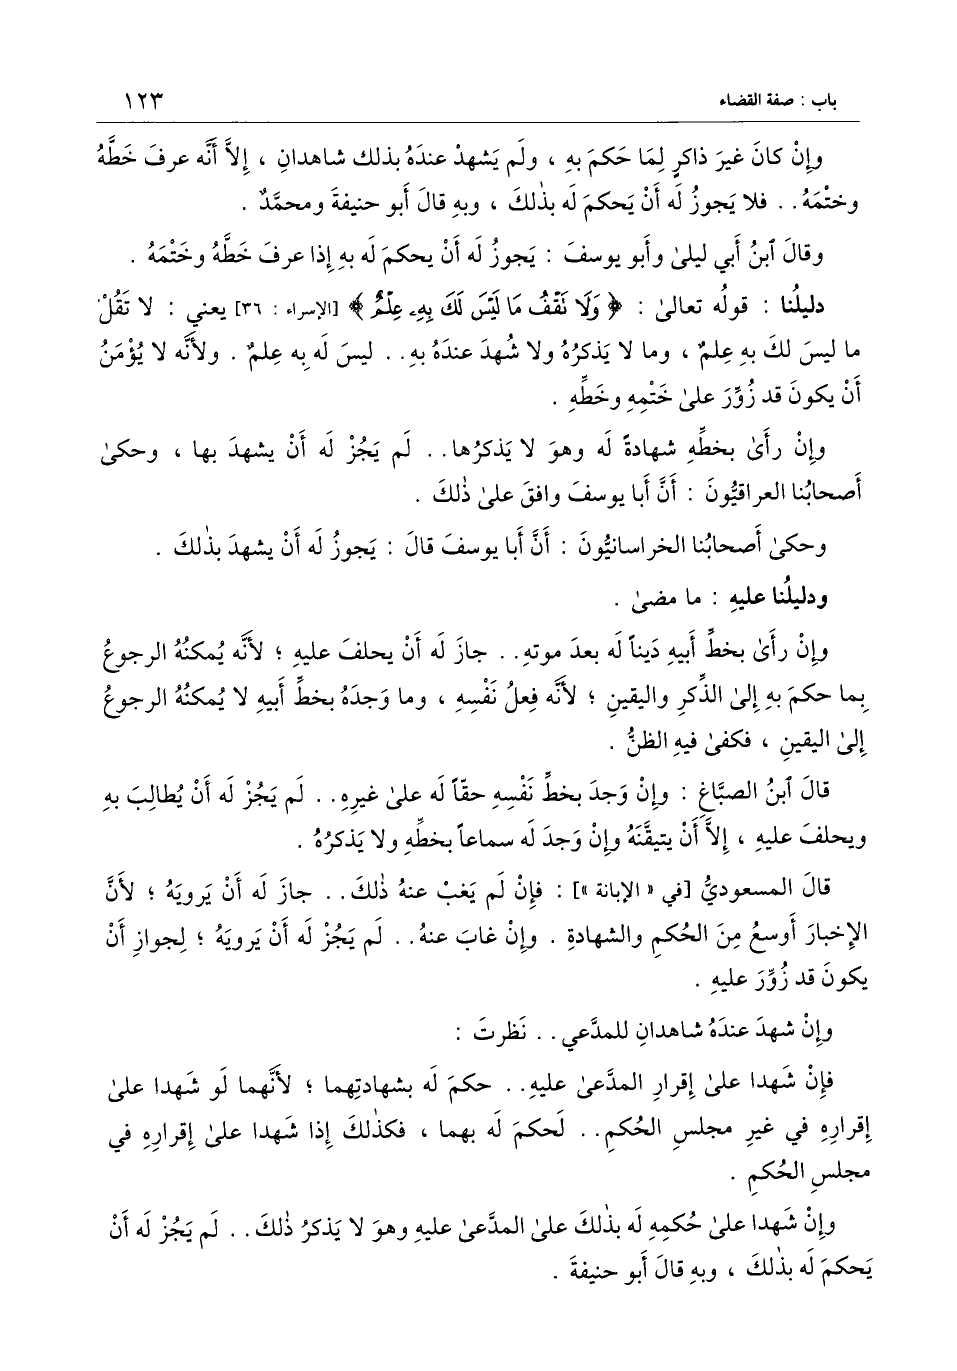 باب : صفة القضاء ١٢٣
وإِنْ كانَ غيرَ ذاكرٍ لِمَا حَكمَ بهِ ، ولَم يَشهدْ عندَهُ بذلك شاهدانِ ، إِلاَّ أَنَّه عرفَ خَطَّهُ
وختْمَهُ . . فلا يَجوزُ لَه أَنْ يَحكمَ لَه بذٰلكَ ، وبهِ قالَ أَبو حنيفةَ ومحمَّدٌ .
وقالَ ٱبنُ أَبي ليلىٰ وأَبو يوسفَ : يَجوزُ لَه أَنْ يحكمَ لَه بهِ إِذا عرفَ خَطَّهُ وخَتْمَهُ .
دليلُنا : قولُه تعالىٰ : ﴿ وَلَا نَقْفُ مَا لَيْسَ لَكَ بِهِۦ عِلْمٌ ﴾ [الإسراء : ٣٦] يعني : لا تَقُلْ
ما ليسَ لكَ به عِلمٌ ، وما لا يَذكرُهُ ولا شُهدَ عندَهُ بهِ . . ليسَ لَه بِه عِلمٌ . ولأَنَّه لا يُؤْمَنُ
أَنْ يكونَ قد زُوِّرَ علىٰ خَتْمِهِ وخَطِّهِ .
وإِنْ رأَىٰ بخطِّهِ شهادةً لَه وهوَ لا يَذكرُها . . لَم يَجُزْ لَه أَنْ يشهدَ بها ، وحكىٰ
أَصحابُنا العراقيُّونَ : أَنَّ أَبا يوسفَ وافقَ علىٰ ذٰلكَ .
وحكىٰ أَصحابُنا الخراسانيُّونَ : أَنَّ أَبا يوسفَ قالَ : يَجوزُ لَه أَنْ يشهدَ بذٰلكَ .
ودليلُنا عليهِ : ما مضىٰ .
وإِنْ رأَىٰ بخطِّ أَبيهِ دَيناً لَه بعدَ موتهِ . . جازَ لَه أَنْ يحلفَ عليهِ ؛ لأَنَّه يُمكنُهُ الرجوعُ
بِما حكمَ بهِ إِلىٰ الذِّكرِ واليقينِ ؛ لأَنَّه فِعلُ نَفْسِهِ ، وما وَجدَهُ بخطِّ أَبيهِ لا يُمكنُهُ الرجوعُ
إِلىٰ اليقينِ ، فكفىٰ فيهِ الظنُّ .
قالَ ٱبنُ الصبَّاغِ : وإِنْ وَجدَ بخطِّ نَفْسِهِ حقّاً لَه علىٰ غيرِهِ . . لَم يَجُزْ لَه أَنْ يُطالِبَ بهِ
ويحلفَ عليهِ ، إِلاَّ أَنْ يتيقَّنَهُ وإِنْ وَجدَ لَه سماعاً بخطِّهِ ولا يَذكرُهُ .
قالَ المسعوديُّ [في « الإبانة »] : فإِنْ لَم يَغبْ عنهُ ذٰلكَ . . جازَ لَه أَنْ يَرويَهُ ؛ لأَنَّ
الإِخبارَ أَوسعُ مِنَ الحُكمِ والشهادةِ . وإِنْ غابَ عنهُ . . لَم يَجُزْ لَه أَنْ يَرويَهُ ؛ لِجوازِ أَنْ
يكونَ قد زُوِّرَ عليهِ .
وإِنْ شهدَ عندَهُ شاهدانِ للمدَّعي . . نَظرتَ :
فإِنْ شَهدا علىٰ إِقرارِ المدَّعىٰ عليهِ . . حكمَ لَه بشهادتِهما ؛ لأَنَّهما لَو شَهدا علىٰ
إِقرارِهِ في غيرِ مجلسِ الحُكمِ . . لَحكمَ لَه بهما ، فكذٰلكَ إِذا شَهدا علىٰ إِقرارِهِ في
مجلسِ الحُكمِ .
وإِنْ شَهدا علىٰ حُكمِهِ لَه بذٰلكَ علىٰ المدَّعىٰ عليهِ وهوَ لا يَذكرُ ذٰلكَ . . لَم يَجُزْ لَه أَنْ
يَحكمَ لَه بذٰلكَ ، وبهِ قالَ أَبو حنيفةَ .